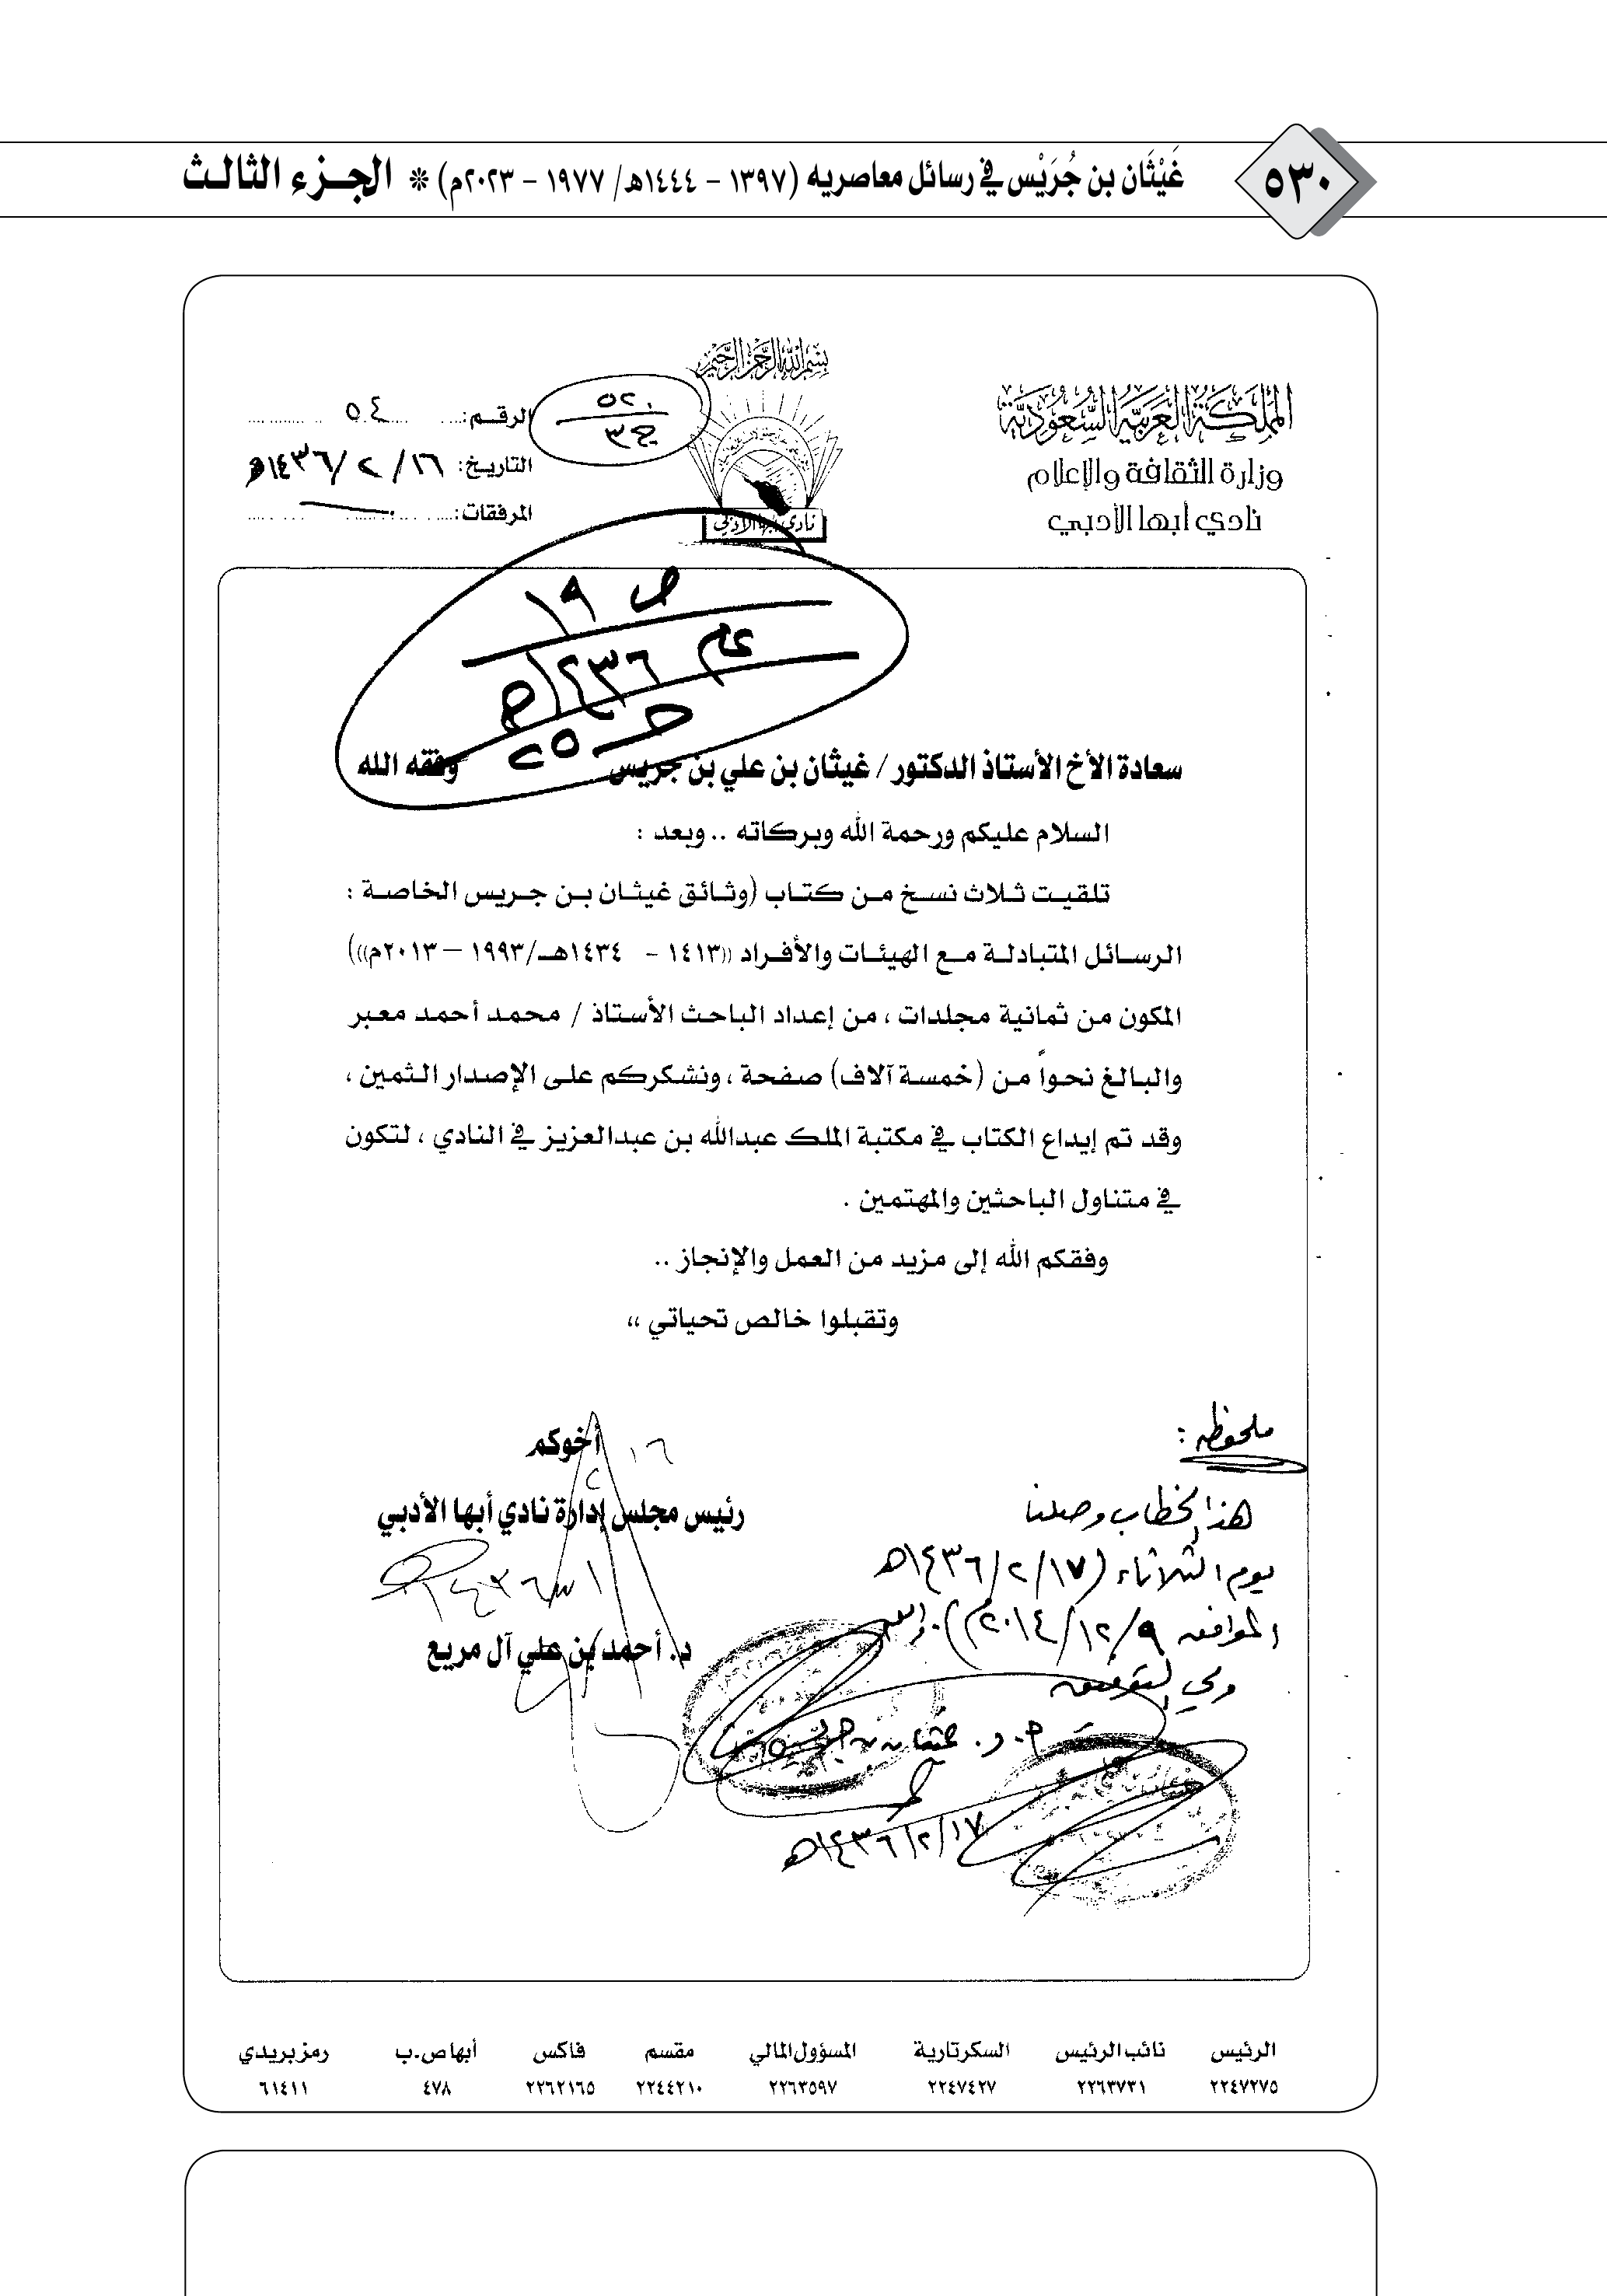 ٥٣٠
غَيْثَان بن جُرَيْس في رسائل معاصريه (١٣٩٧ - ١٤٤٤هـ/ ١٩٧٧ - ٢٠٢٣م) * الجـزء الثالث
بسم الله الرحمن الرحيم
المملكة العربية السعودية
وزارة الثقافة والإعلام
نادي أبها الأدبي
نادي أبها الأدبي
الرقـم: ٥٤
التاريخ: ١٦ / ٢ / ١٤٣٦هـ
المرفقات:
٥٢٠
ج٣
ص ١٩
عام ١٤٣٦هـ
حـ ٢٥
سعادة الأخ الأستاذ الدكتور / غيثان بن علي بن جريس وفقه الله
السلام عليكم ورحمة الله وبركاته .. وبعد :
تلقيت ثلاث نسخ من كتاب (وثائق غيثان بن جريس الخاصة :
الرسائل المتبادلة مع الهيئات والأفراد ((١٤١٣ - ١٤٣٤هـ/١٩٩٣ – ٢٠١٣م))
المكون من ثمانية مجلدات ، من إعداد الباحث الأستاذ / محمد أحمد معبر
والبالغ نحواً من (خمسة آلاف) صفحة ، ونشكركم على الإصدار الثمين ،
وقد تم إيداع الكتاب في مكتبة الملك عبدالله بن عبدالعزيز في النادي ، لتكون
في متناول الباحثين والمهتمين .
وفقكم الله إلى مزيد من العمل والإنجاز ..
وتقبلوا خالص تحياتي ،،
أخوكم
رئيس مجلس إدارة نادي أبها الأدبي
١٦ / ٢ / ١٤٣٦
د. أحمد بن علي آل مريع
ملحوظه :
هذا الخطاب وصلنا
يوم الثلاثاء (١٧/ ٢/ ١٤٣٦هـ
الموافق ٩/ ١٢/ ٢٠١٤م).
ولي التوفيق
أ. د. غيثان بن جريس
١٧/ ٢/ ١٤٣٦هـ
الرئيس نائب الرئيس السكرتارية المسؤول المالي مقسم فاكس أبها ص.ب رمز بريدي
٢٢٤٧٢٧٥ ٢٢٦٣٧٣١ ٢٢٤٧٤٢٧ ٢٢٦٣٥٩٧ ٢٢٤٤٢١٠ ٢٢٦٢١٦٥ ٤٧٨ ٦١٤١١